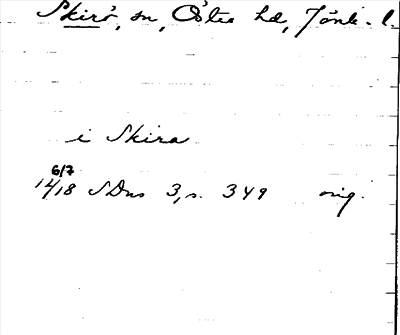 Skirö, sn, Östra hd, Jönk. l.
i Skira
6/7
1418 SDns 3, s. 349 orig.